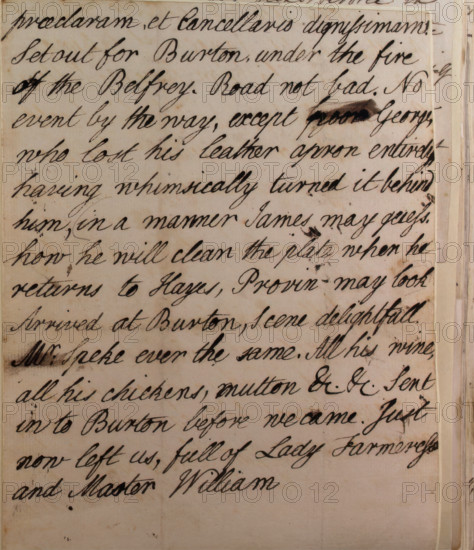 præclaram, et Cancellario dignissimam.
Set out for Burton, under the fire
off the Belfrey. Road not bad. No
event by the way, except poor George
who lost his leather apron entirely
having whimsically turned it behind
him, in a manner James may guess.
how he will clean the plate when he
returns to Hayes, Provin may look
Arrived at Burton, Scene delightfull
Mr. Speke ever the same. All his wine,
all his chickens, mutton &c. &c. Sent
in to Burton before we came. Just
now left us, full of Lady Farmeress
and Master William